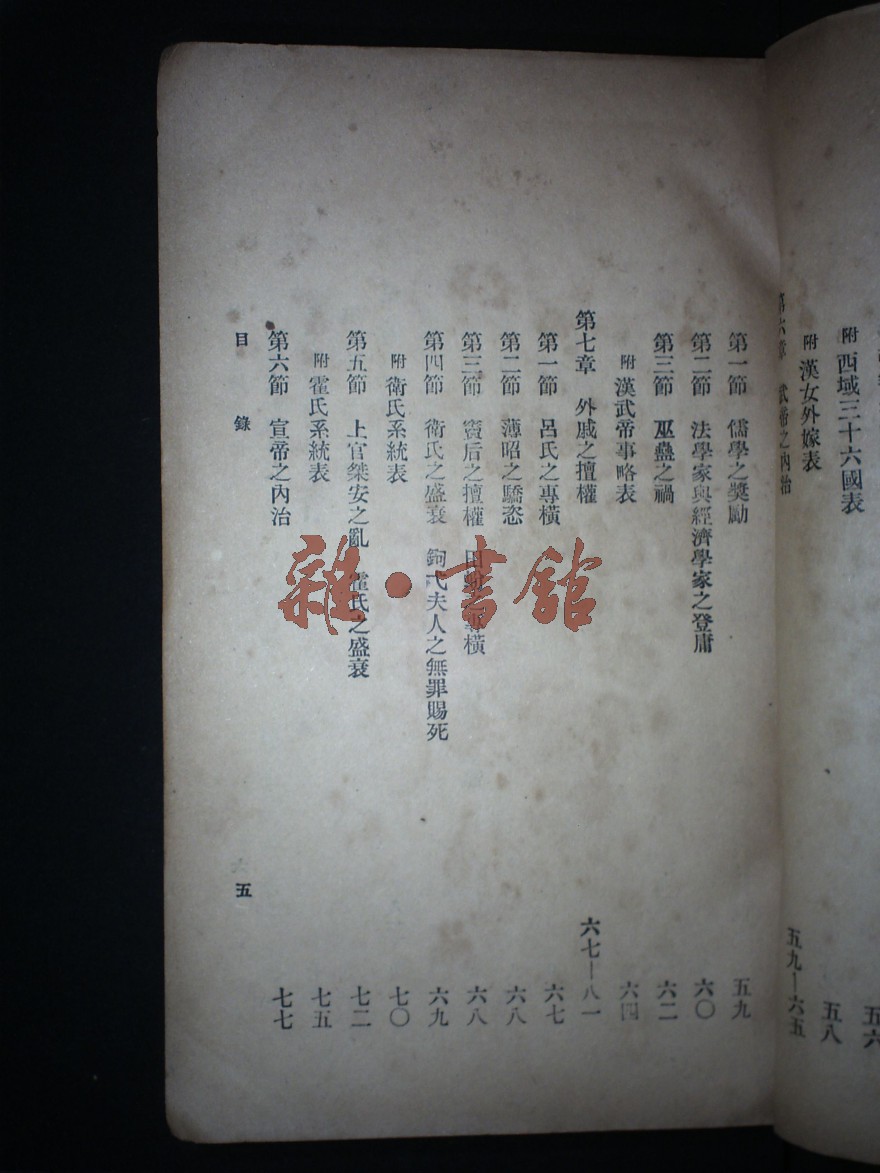 附 西域三十六國表 五六
附 漢女外嫁表 五八
第六章 武帝之內治 五九—六五
第一節 儒學之獎勵 五九
第二節 法學家與經濟學家之登庸 六〇
第三節 巫蠱之禍 六二
附 漢武帝事略表 六四
第七章 外戚之擅權 六七—八一
第一節 呂氏之專橫 六七
第二節 薄昭之驕恣 六八
第三節 竇后之擅權 田蚡之專橫 六八
第四節 衛氏之盛衰 鉤弋夫人之無罪賜死 六九
附 衛氏系統表 七〇
第五節 上官桀安之亂 霍氏之盛衰 七二
附 霍氏系統表 七五
第六節 宣帝之內治 七七
目錄 五
雜·書館